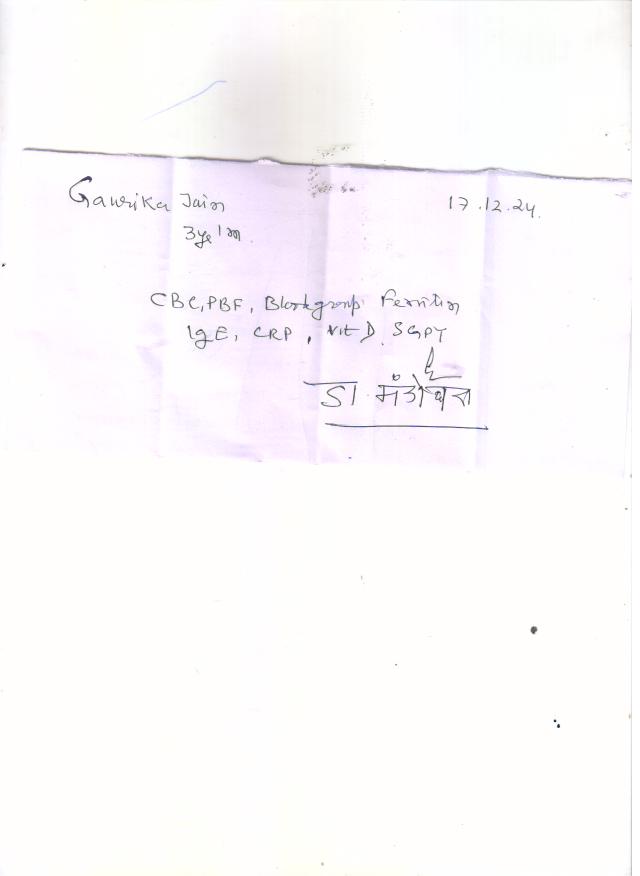 Gaurika Jain 17.12.24.
3ye 1m
CBC, PBF, Blood group Ferritin
IgE, CRP, Vit D, SGPT
डा मंडोवरा